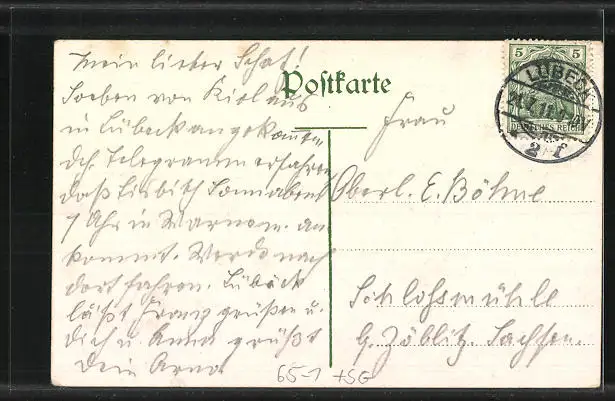 Mein lieber Schatz!
Soeben von Kiel aus
in Lübeck angekommen
dch. Telegramm erfahren
daß Lisbeth Sonnabend
7 Uhr in Warnem. an
kommt. Werde nach
dort fahren. Lübeck
läßt Franz grüßen u.
Dich u. Anna grüßt
Dein Arno
Postkarte
5 5
DEUTSCHES REICH
LÜBECK
2 f
Frau
Oberl. E. Böhne
Schloßmühle
b. Zöblitz. Sachsen.
65-1 +SG